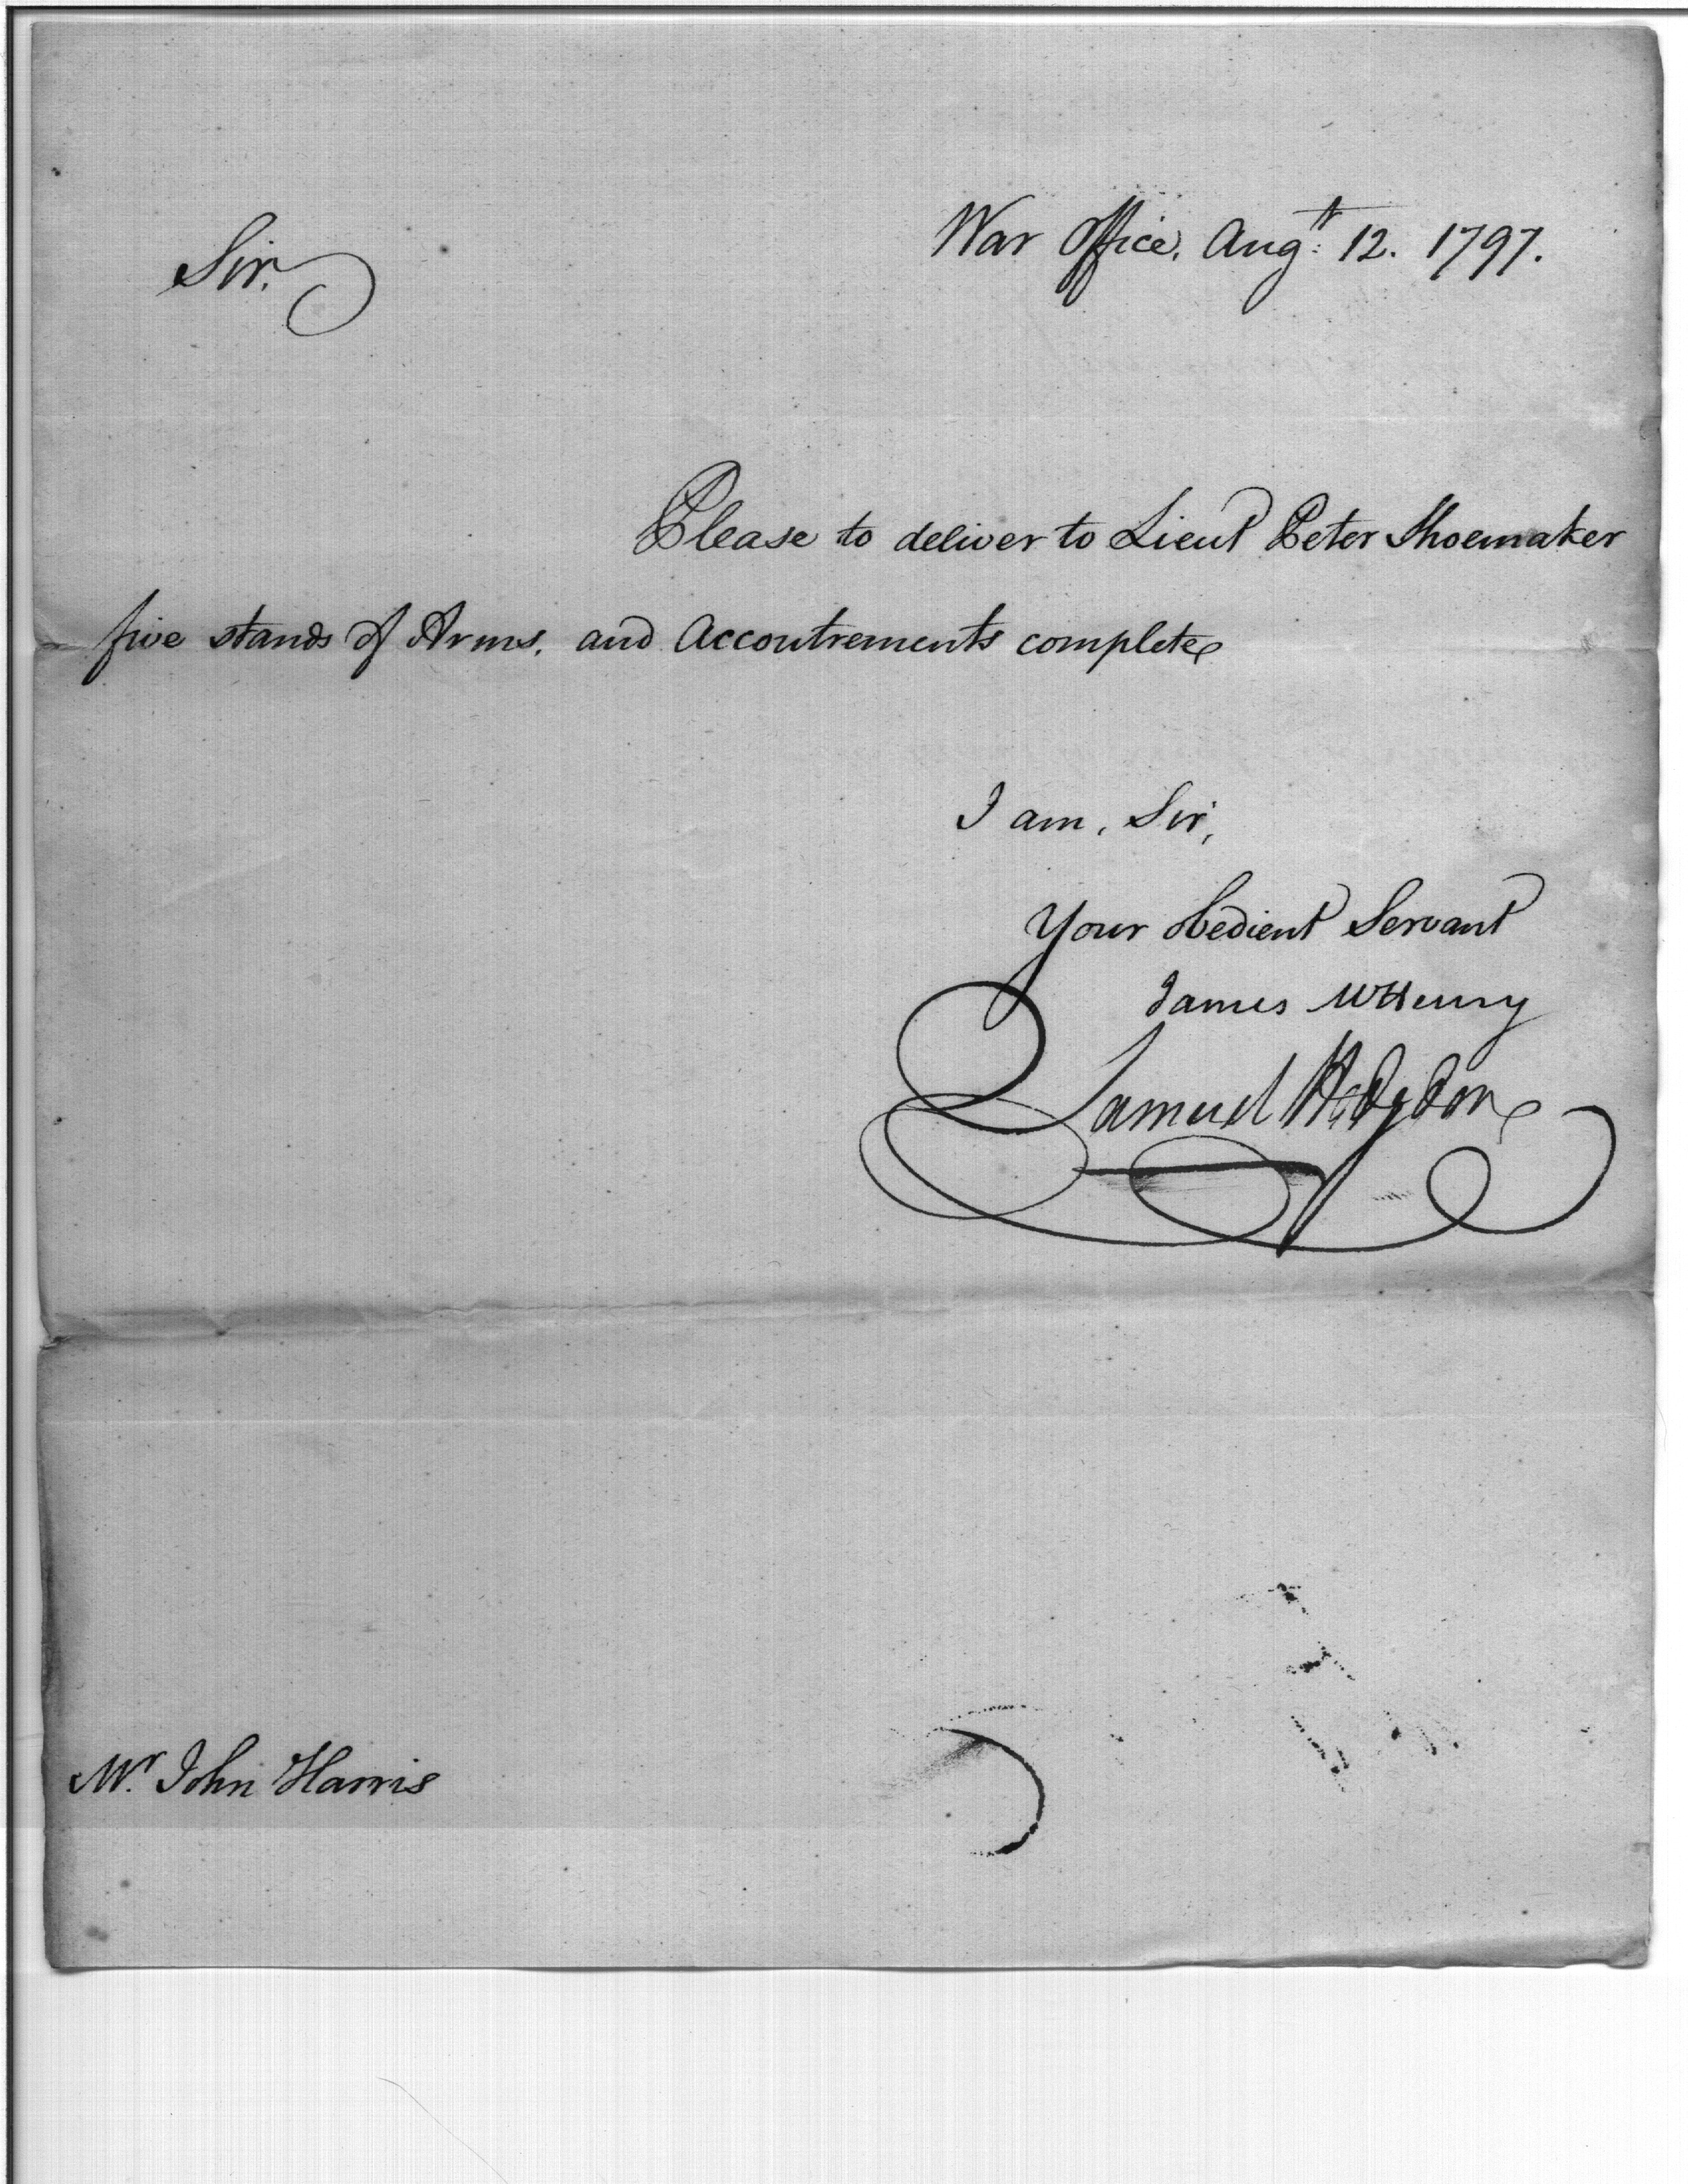 War Office, Augt: 12. 1797.
Sir,
Please to deliver to Lieut Peter Shoemaker
five stands of Arms, and Accoutrements complete
I am, Sir,
Your obedient Servant
James McHenry
Samuel Hodgdon
Mr. John Harris